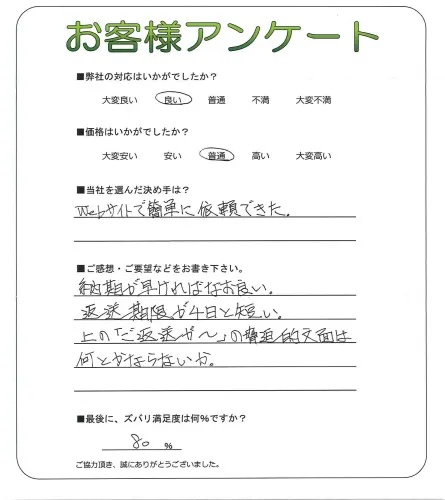 お客様アンケート
■弊社の対応はいかがでしたか？
大変良い 良い 普通 不満 大変不満
■価格はいかがでしたか？
大変安い 安い 普通 高い 大変高い
■当社を選んだ決め手は？
Webサイトで簡単に依頼できた。
■ご感想・ご要望などをお書き下さい。
納期が早ければなお良い。
返送期限が4日と短い。
上の「ご返送が〜」の脅迫的文面は
何とかならないか。
■最後に、ズバリ満足度は何％ですか？
80 %
ご協力頂き、誠にありがとうございました。